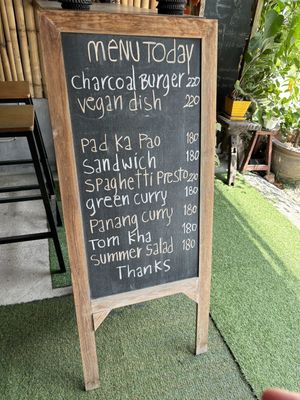 menu Today
charcoal Burger 220
vegan dish 220
Pad Ka Pao 180
Sandwich 180
Spaghetti Presto 220
green curry 180
Panang curry 180
Tom Kha 180
Summer Salad 180
Thanks